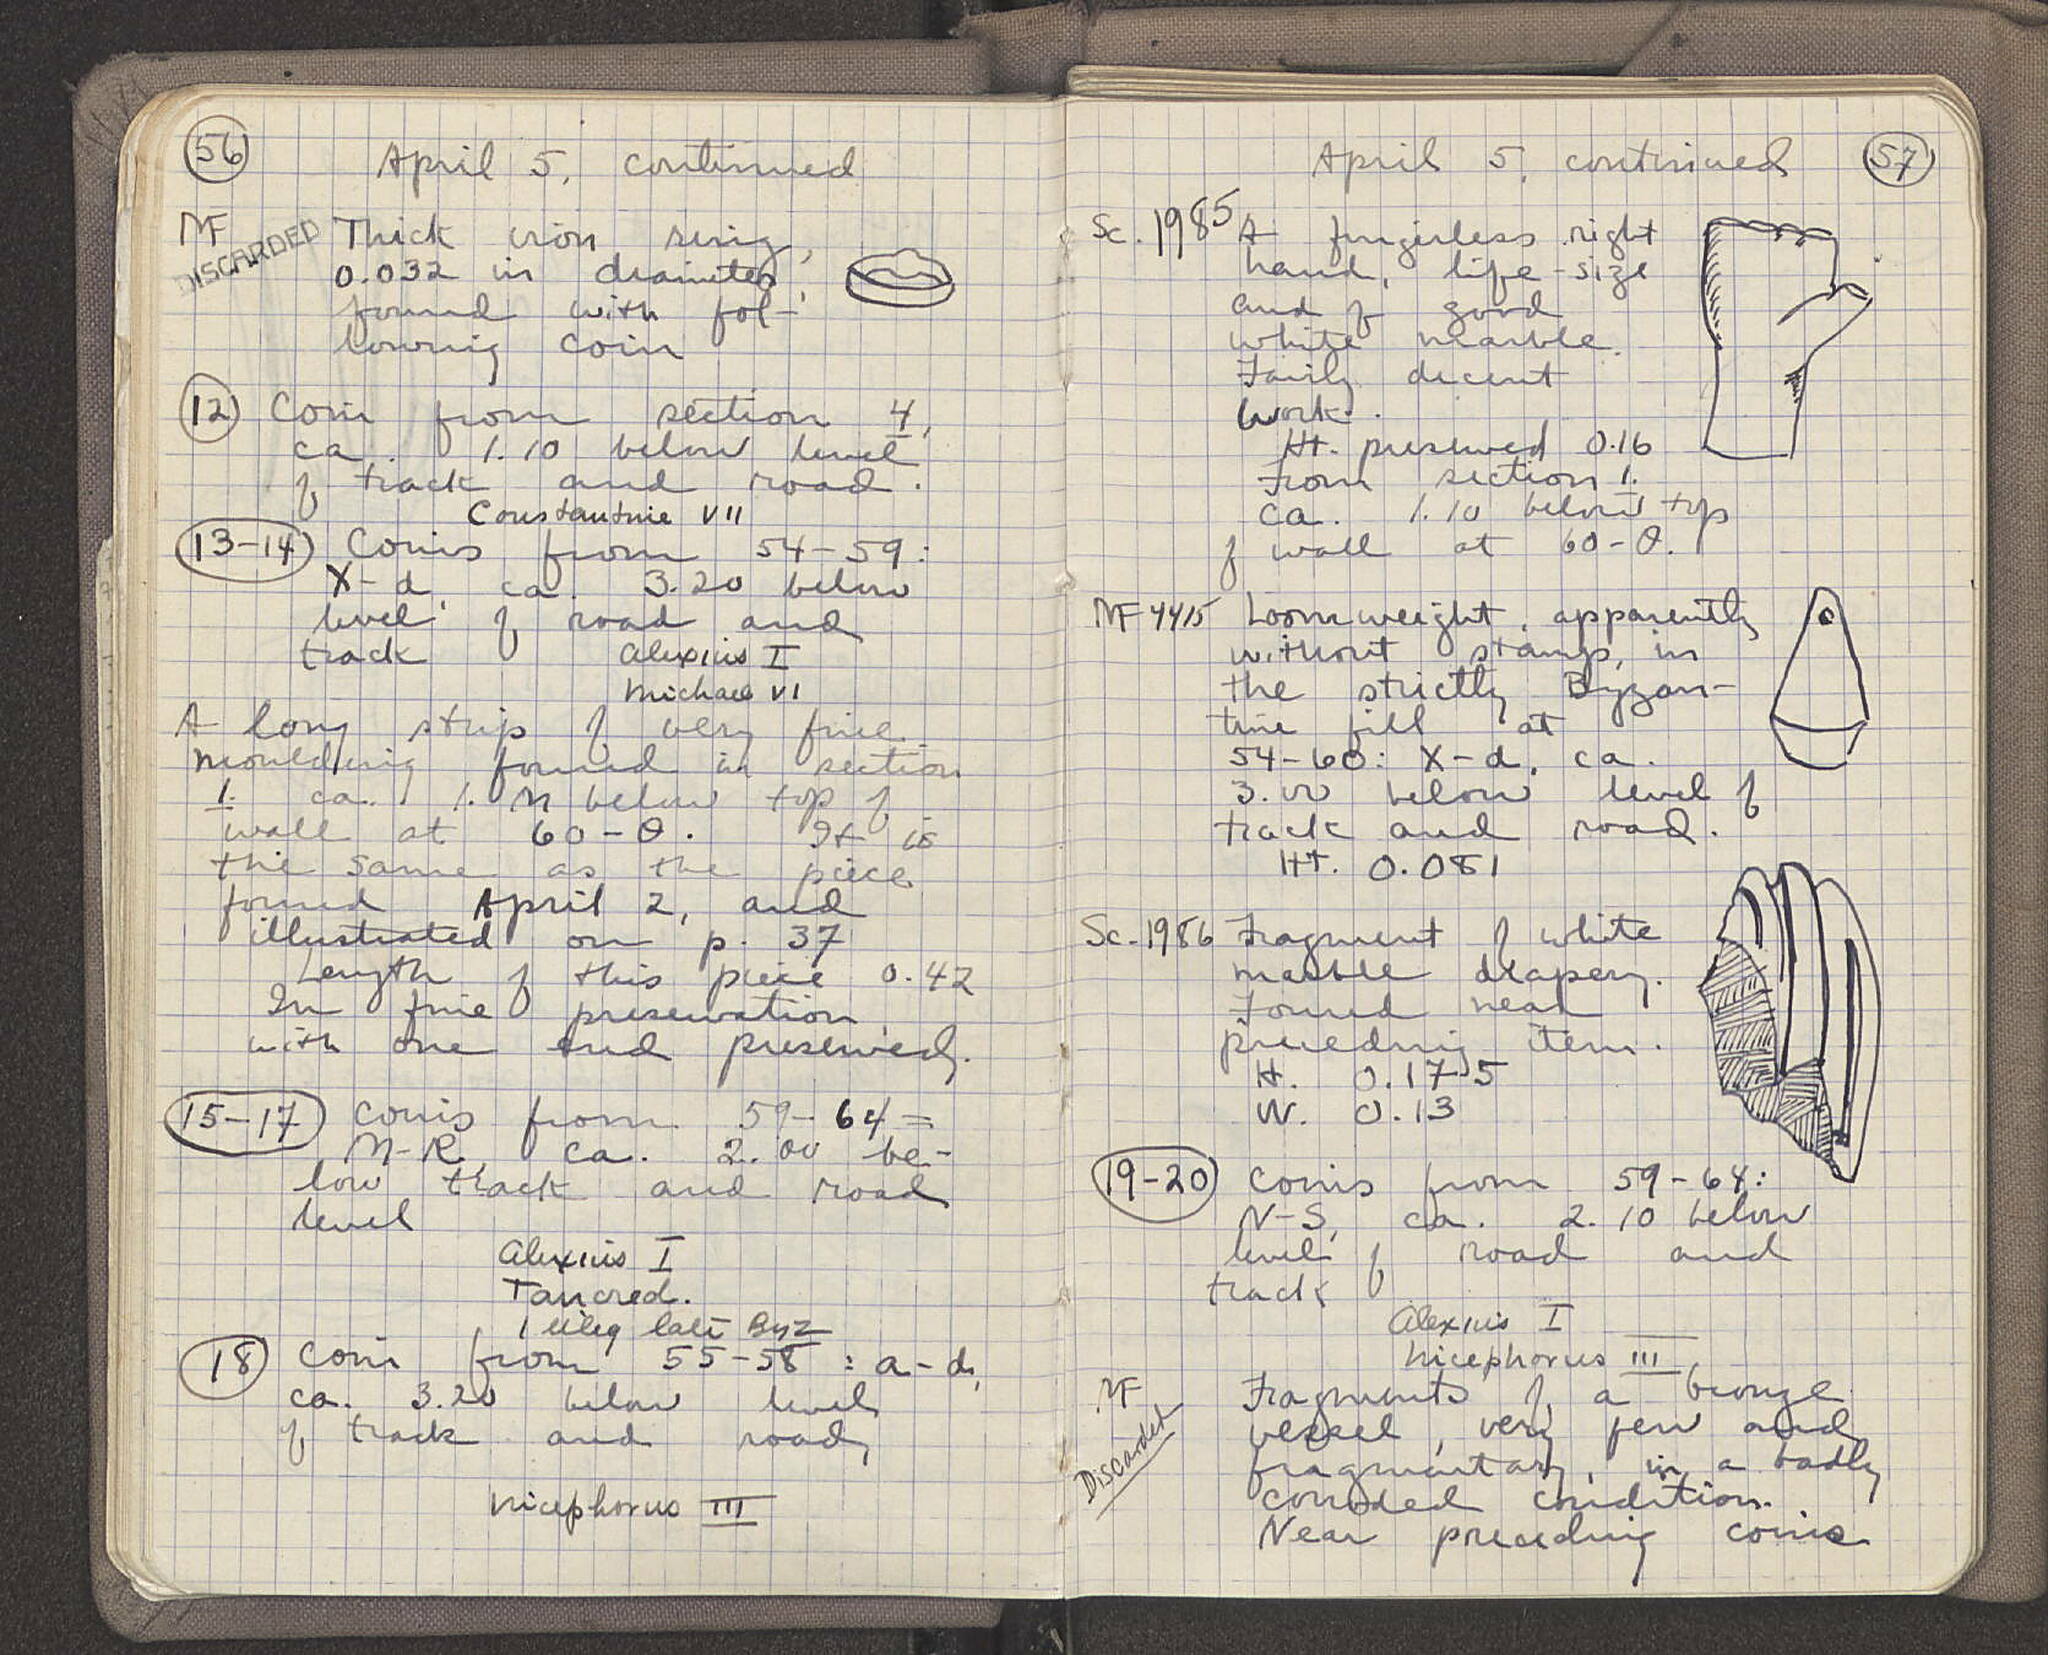 56
April 5, continued
MF
DISCARDED
Thick iron ring,
0.032 in diameter,
found with fol-
lowing coin
12 Coin from section 4,
ca. 1.10 below level
of track and road.
Constantine VII
13-14 Coins from 54-59:
X-d, ca. 3.20 below
level of road and
track
Alexius I
Michael VI
A long strip of very fine
moulding found in section
1. ca. 1. below top of
wall at 60-θ. It is
the same as the piece
found April 2, and
illustrated on p. 37
Length of this piece 0.42
In fine preservation,
with one end preserved.
15-17 Coins from 59-64=
M-R ca. 2.00 be-
low track and road
level
Alexius I
Tancred.
1 illeg late Byz
18 Coin from 55-58: a-d,
ca. 3.20 below level
of track and road,
Nicephorus III
April 5, continued 57
Sc. 1985 A fingerless right
hand, life-size
and of good
white marble.
Fairly decent
work.
Ht. preserved 0.16
From section 1.
ca. 1.10 below top
of wall at 60-θ.
MF 4415 Loomweight, apparently
without stamp, in
the strictly Byzan-
tine fill at
54-60: X-d, ca.
3.00 below level of
track and road.
Ht. 0.081
Sc. 1986 Fragment of white
marble drapery.
Found near
preceding item.
H. 0.175
W. 0.13
19-20 Coins from 59-64:
N-S, ca. 2.10 below
level of road and
track
Alexius I
Nicephorus III
MF
Discarded
Fragments of a bronze
vessel, very few and
fragmentary, in a badly
corroded condition.
Near preceding coins